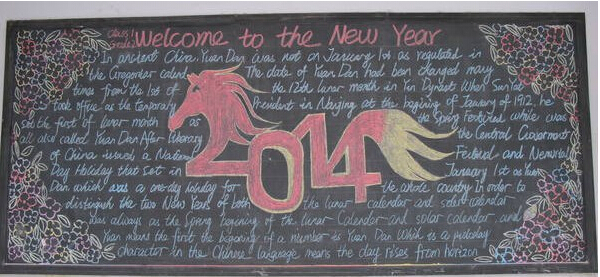 Class 1
Grade 2
Welcome to the New Year
In ancient China Yuan Dan was not on January 1st as regulated in
the Gregorian The date of Yuan Dan had been changed many
times from the 1st of the 12th lunar month in Yin Dynast When Sun
took office as the temporary President in at the of January of 1912, he
the first of lunar month as the Spring Festival while was
all also called Yuan Dan After the Central
of China issued a National Festival and
Day Holiday that set in January 1st as
Dan which a one-day holiday for the whole country In order to
distinguish the two New Years of both the lunar calendar and solar calendar
was always as the Spring beginning of the lunar Calendar and solar calendar and
Yuan means the first the of a number is Yuan Dan Which is a
character in the Chinese language means the day rises from horizon
2014